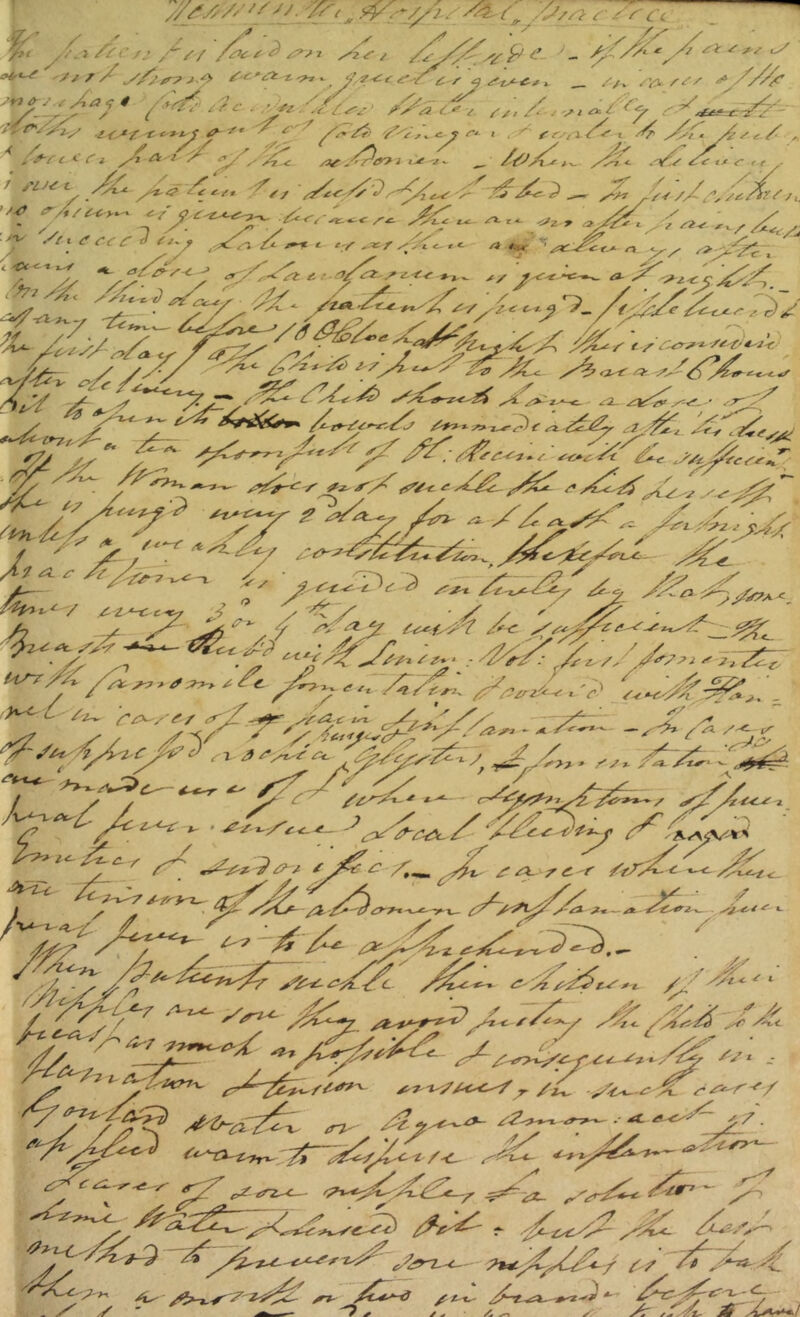 Westminster Hospital practice
The patient is laid on her left side - if the pains
are not strong warm gruel is given - in cases of He
morrhage Cold Acidulated Water internally &
cloths wrung out of Cold Vinegar & water to the pub
& lower part of the abdomen - When the delivery
is over the patient is & put to bed - In first children
no opium is given because there are no after pains but
in succeeding Labours as there are always after
pains a dose of Laudanum is given at night -
On the third day the patient is purg'd - (if deliver'd
at any time before 10 OClock at Night this is consider'd
the first day) The Child is put to the Breast 6 hours
after delivery - The Child should have a dose of
Oil to open its bowels immediately after tis dress'd
about a tea spoonfull of Ol: Recini will be sufficient
If the Woman does not suckle the child herself
she is purg'd every 2d day for at least a fortnight
unless a weakly constitution, therefore the
practitioner is guided intirely by that, some
times every 3d or 4th day will be sufficient - The
Breasts Rub'd with Linim: Vol: first fomented
with Camomile fomentation & cover'd with Flan=
nel in cases of pain & inflamation - In Cases
of suppress'd Lochia purges Glysters, & fomentation &c
are made use of & where symptoms of puer
peral fever ensue Local bleeding &
Emetics & sudorifics. - In cases where there
are tension of the abdomen & inflamation puer
peral fever is to be apprehended. -
When patients suckle their children if their
Nipples are sore they avoid puting the Child to the
breast as much as possible & consequently in=
flamation & tension ensues, in such cases
Goulard Water or Aqua Amon: acet is
applied warm to disperse the inflamation
In cases of sore nipples a solution of
Lime Water & Linseed Oil - but the best
method to prevent sore nipples is to bath
them a month or two in brandy before